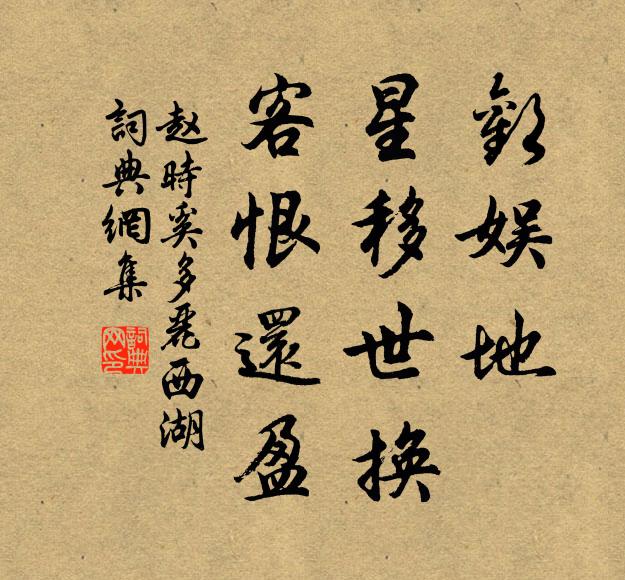 歡娛地
星移世換
客恨還盈
赵時奚多麗西湖
詞典網集
詞典网印